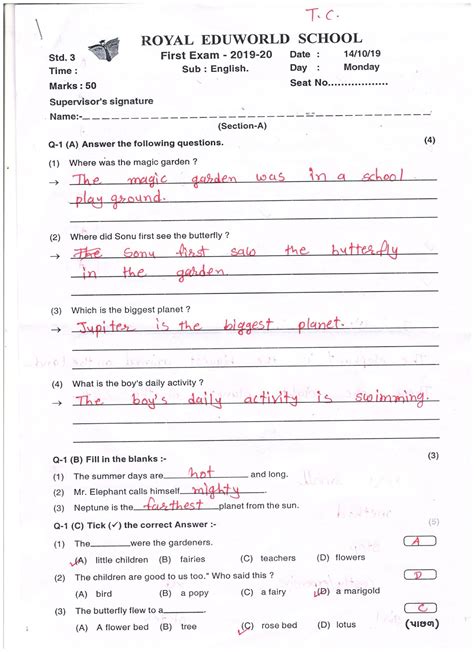 T.C.
ROYAL EDUWORLD SCHOOL
Std. 3 First Exam - 2019-20 Date : 14/10/19
Time : Sub : English. Day : Monday
Marks : 50 Seat No.................
Supervisor's signature
Name:-
(Section-A)
Q-1 (A) Answer the following questions. (4)
(1) Where was the magic garden ?
→ The magic garden was in a school
play ground.
(2) Where did Sonu first see the butterfly ?
→ The Sonu first saw the butterfly
in the garden.
(3) Which is the biggest planet ?
→ Jupiter is the biggest planet.
(4) What is the boy's daily activity ?
→ The boy's daily activity is swimming.
Q-1 (B) Fill in the blanks :- (3)
(1) The summer days are hot and long.
(2) Mr. Elephant calls himself mighty.
(3) Neptune is the farthest planet from the sun.
Q-1 (C) Tick (✓) the correct Answer :- (5)
(1) The______were the gardeners. A
✓(A) little children (B) fairies (C) teachers (D) flowers
(2) The children are good to us too." Who said this ? D
(A) bird (B) a popy (C) a fairy ✓(D) a marigold
(3) The butterfly flew to a______. C
(A) A flower bed (B) tree ✓(C) rose bed (D) lotus (પાછળ)